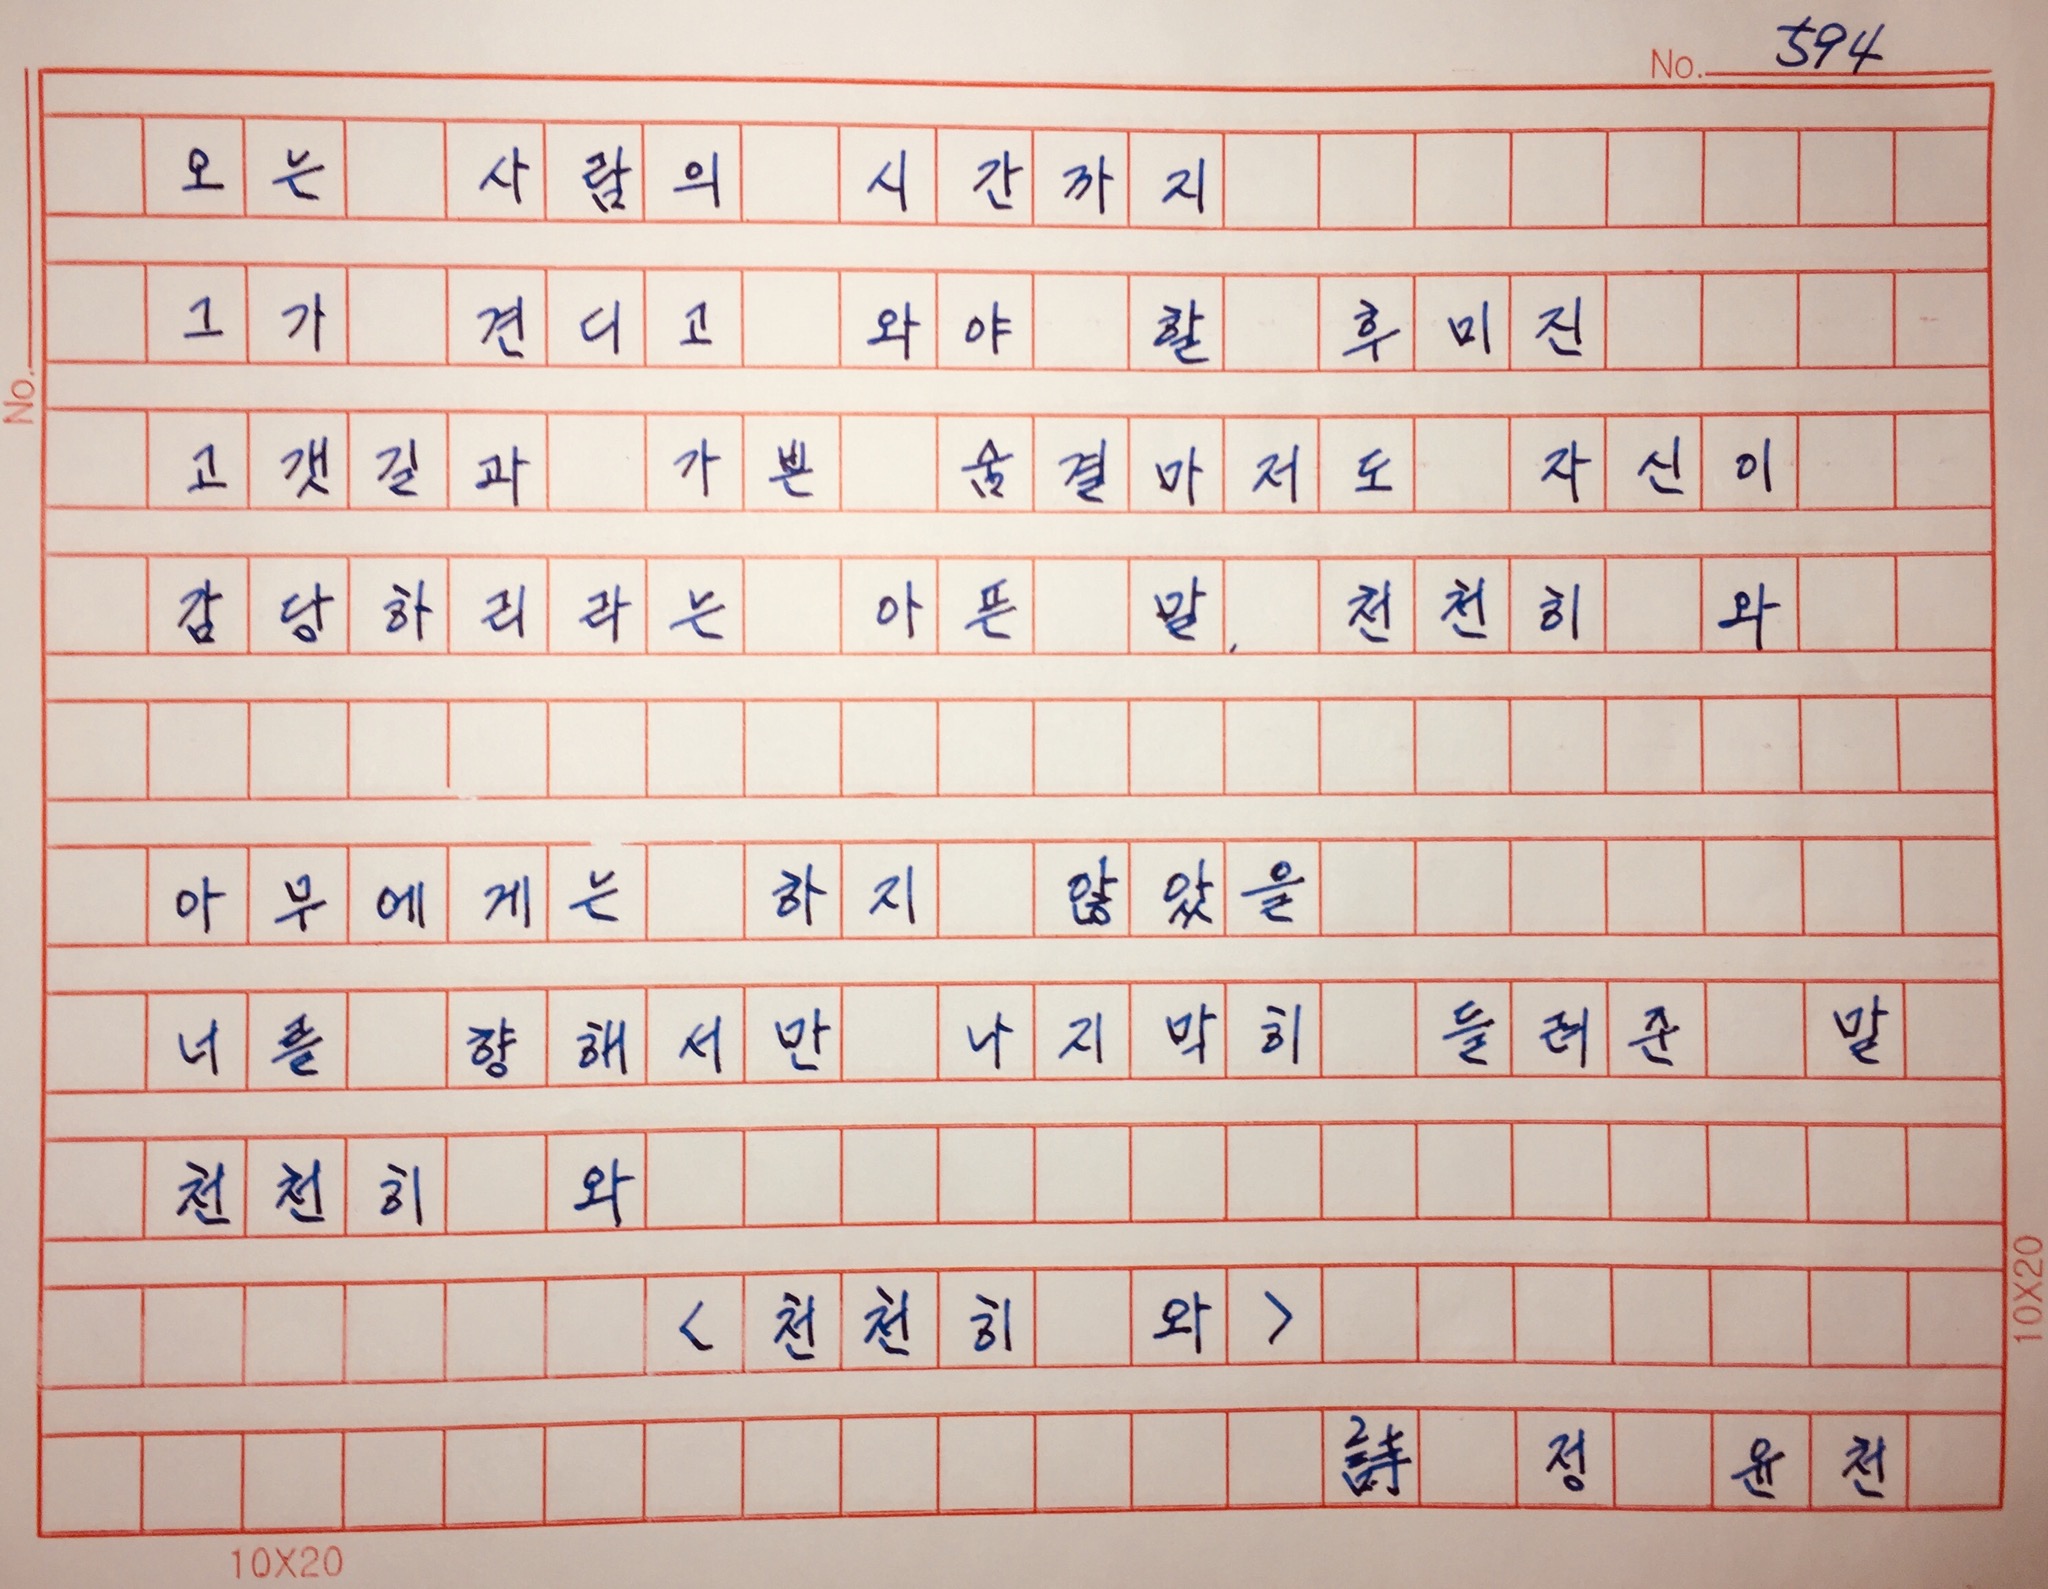 No. 594
오는 사람의 시간까지
그가 견디고 와야 할 후미진
고갯길과 가쁜 숨결마저도 자신이
감당하리라는 아픈 말, 천천히 와
아무에게는 하지 않았을
너를 향해서만 나지막히 들려준 말
천천히 와
<천천히 와>
詩 정 윤천
No.
10X20
10X20